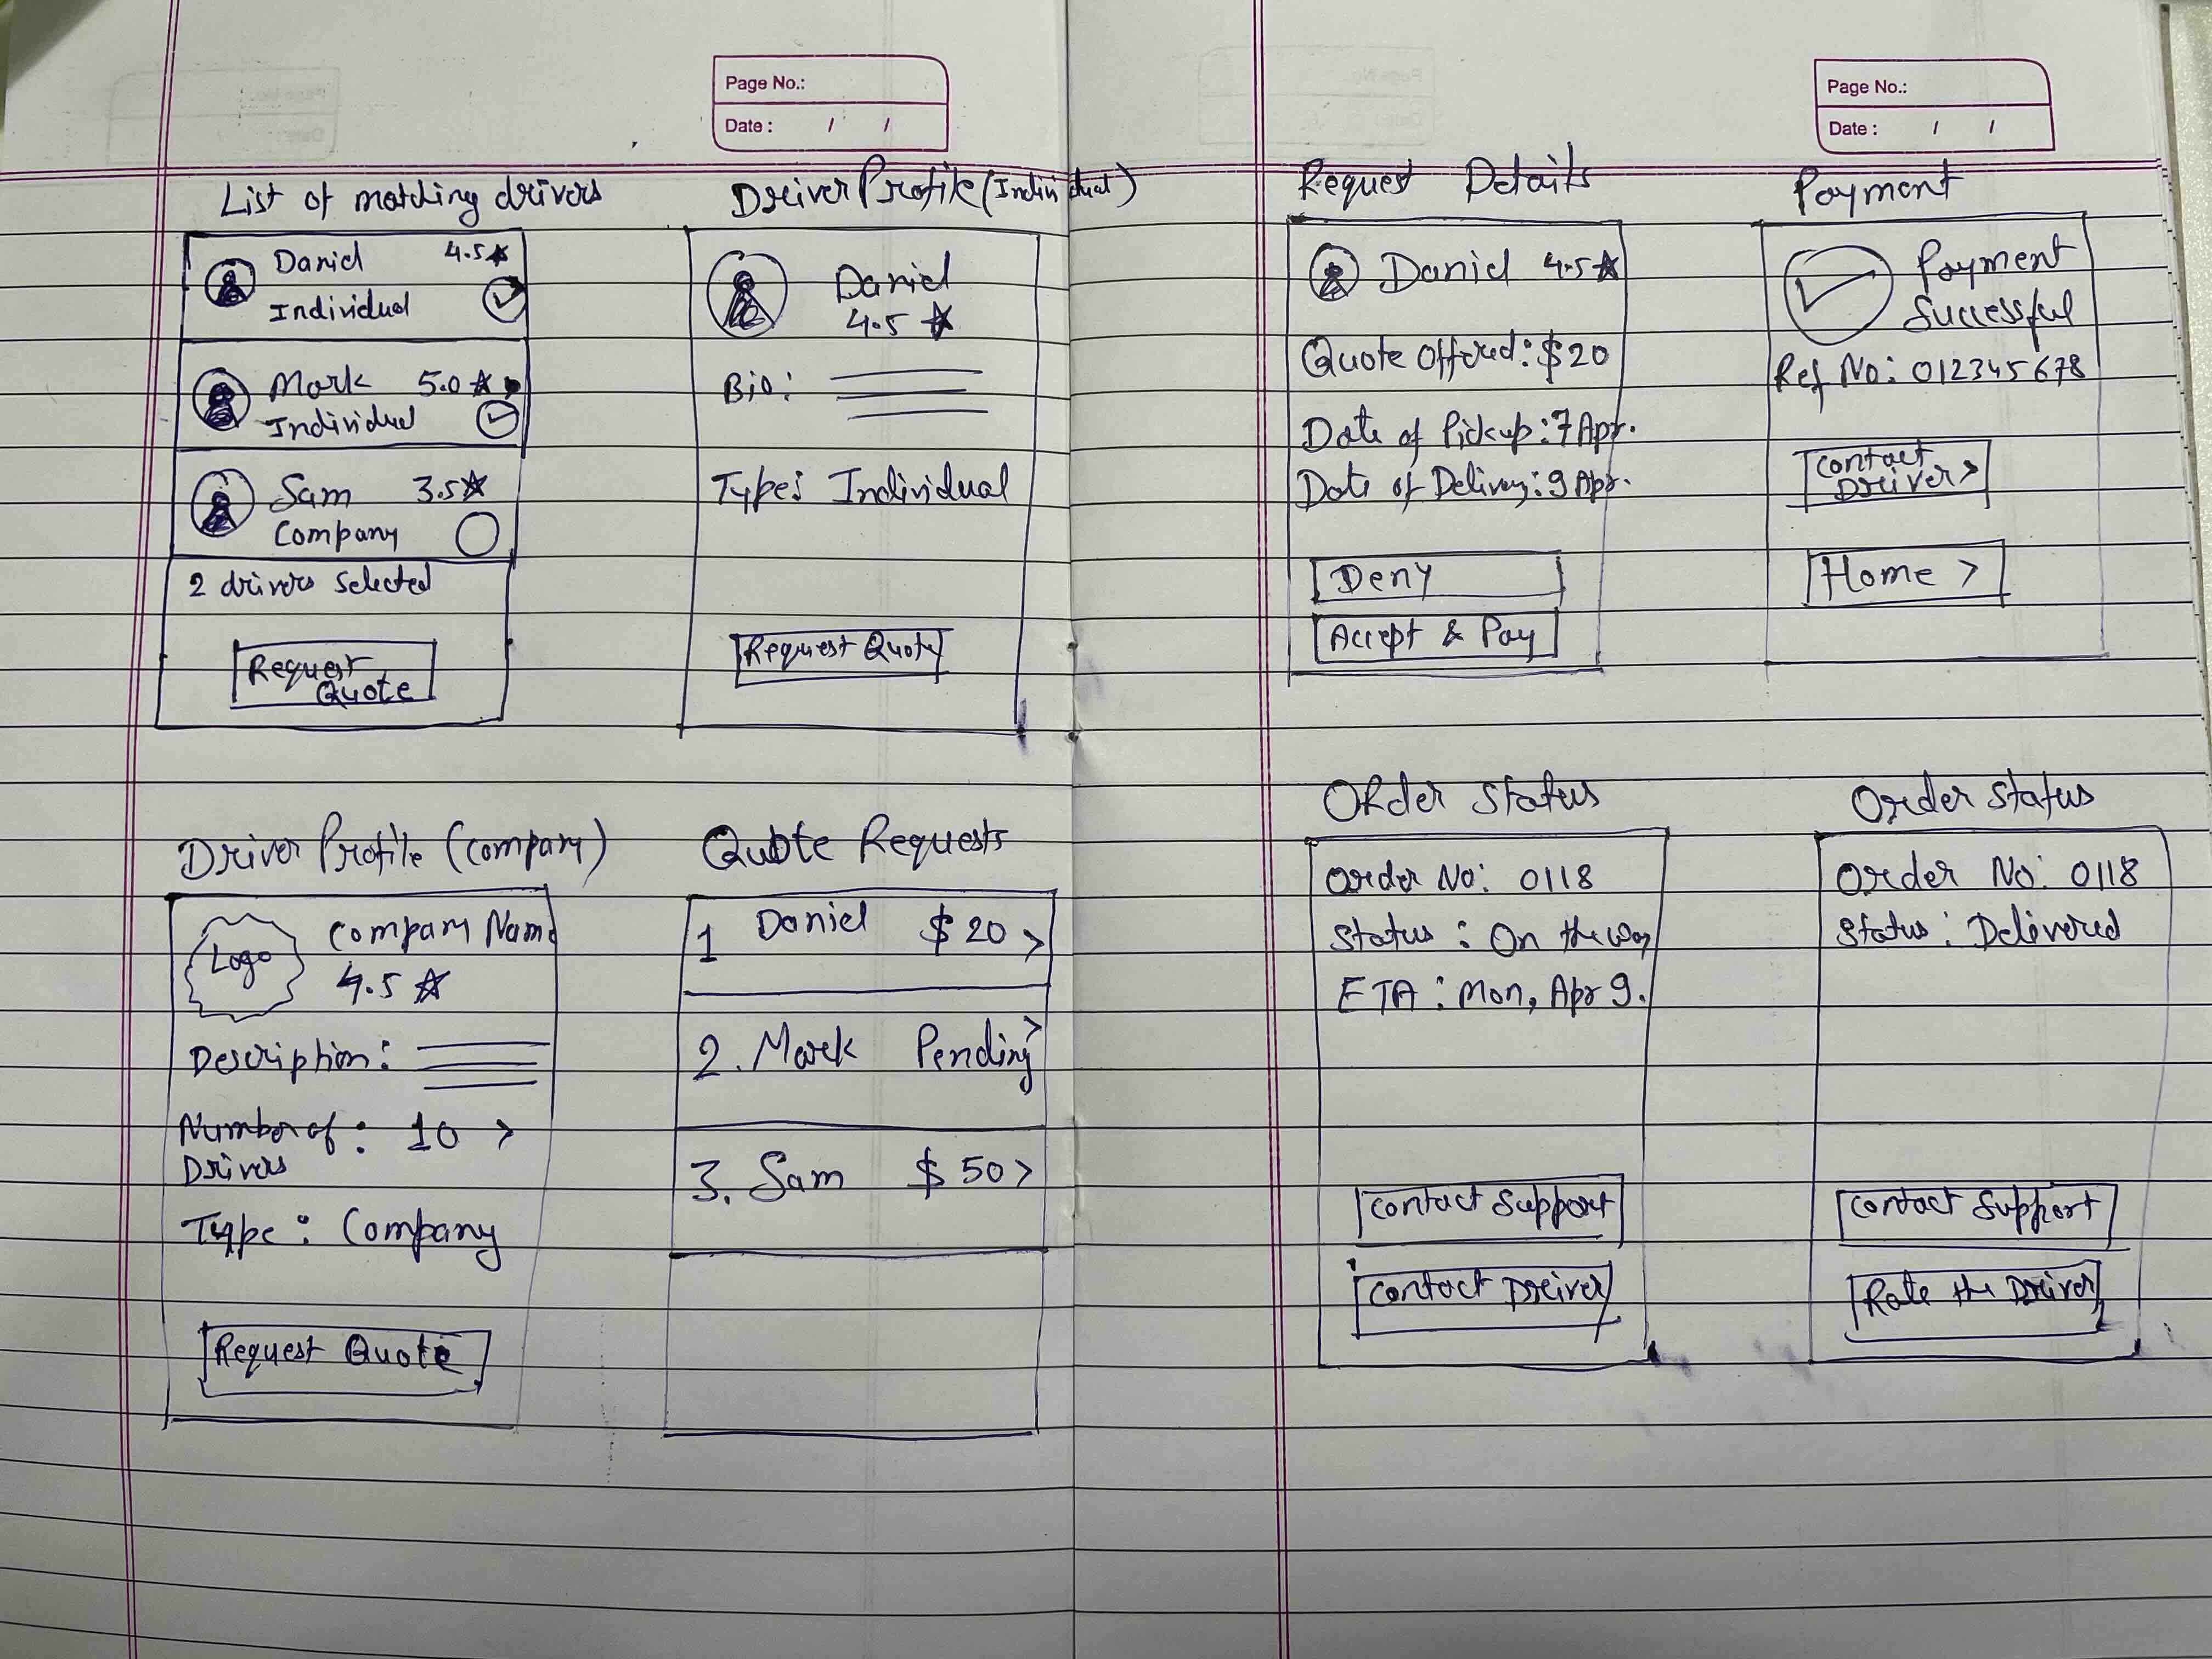 Page No.:
Date : / /
List of matching drivers
Daniel 4.5
Individual
Mark 5.0
Individual
Sam 3.5
Company
2 drivers selected
Request
Quote
Driver Profile (Individual)
Daniel
4.5
Bio:
Type: Individual
Request Quote
Driver Profile (Company)
Logo
Company Name
4.5
Description:
Number of : 10 >
Drivers
Type : Company
Request Quote
Quote Requests
1 Daniel $ 20 >
2. Mark Pending >
3. Sam $ 50 >
Page No.:
Date : / /
Request Details
Daniel 4.5
Quote Offered : $20
Date of Pickup : 7 Apr.
Date of Delivery : 9 Apr.
Deny
Accept & Pay
Payment
Payment
Successful
Ref No: 012345678
Contact
Driver >
Home >
Order Status
Order No: 0118
Status : On the way
ETA : Mon, Apr 9.
Contact Support
Contact Driver
Order Status
Order No: 0118
Status : Delivered
Contact Support
Rate the Driver